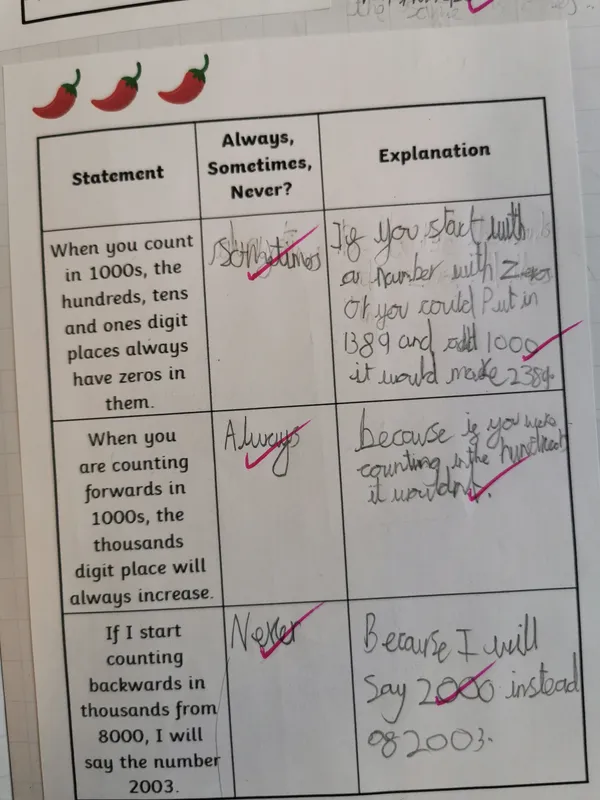 the
Statement
Always,
Sometimes,
Never?
Explanation
When you count
in 1000s, the
hundreds, tens
and ones digit
places always
have zeros in
them.
Somtimes
If you start with
a number with Zeros
Or you could Put in
1389 and add 1000
it would make 2389.
When you
are counting
forwards in
1000s, the
thousands
digit place will
always increase.
Always
because if you were
counting in the hundreds
it wouldnt.
If I start
counting
backwards in
thousands from
8000, I will
say the number
2003.
Never
Because I will
Say 2000 instead
of 2003.